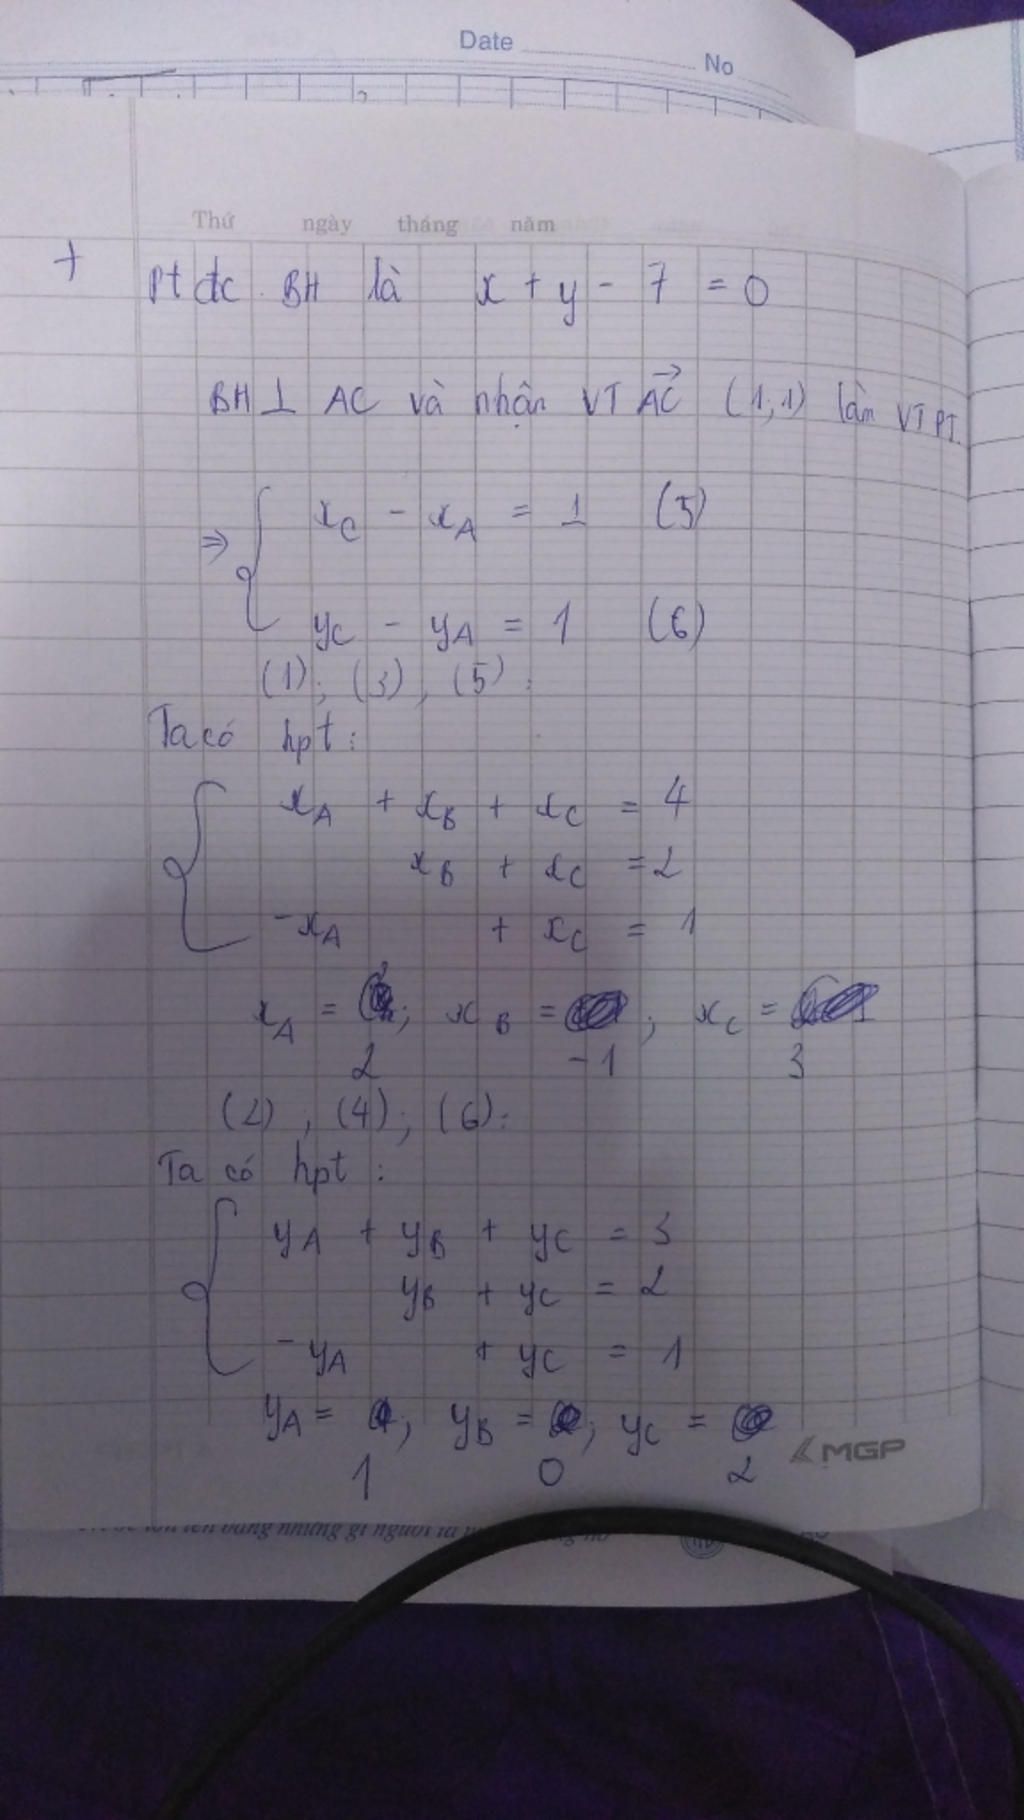 Date
No
Thứ ngày tháng năm
+ pt đc BH là x + y - 7 = 0
BH ⊥ AC và nhận VT AC→ (1;1) làm VTPT.
⇒ { x_C - x_A = 1 (5)
y_C - y_A = 1 (6)
(1); (3), (5) :
Ta có hpt :
{ x_A + x_B + x_C = 4
x_B + x_C = 2
-x_A + x_C = 1
x_A = ; x_B = ; x_C =
2 -1 3
(2), (4); (6):
Ta có hpt :
{ y_A + y_B + y_C = 3
y_B + y_C = 2
-y_A + y_C = 1
y_A = ; y_B = ; y_C =
1 0 2
MGP